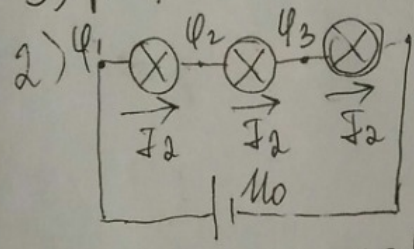 2) φ₁ φ₂ φ₃
I₂ I₂ I₂
U₀